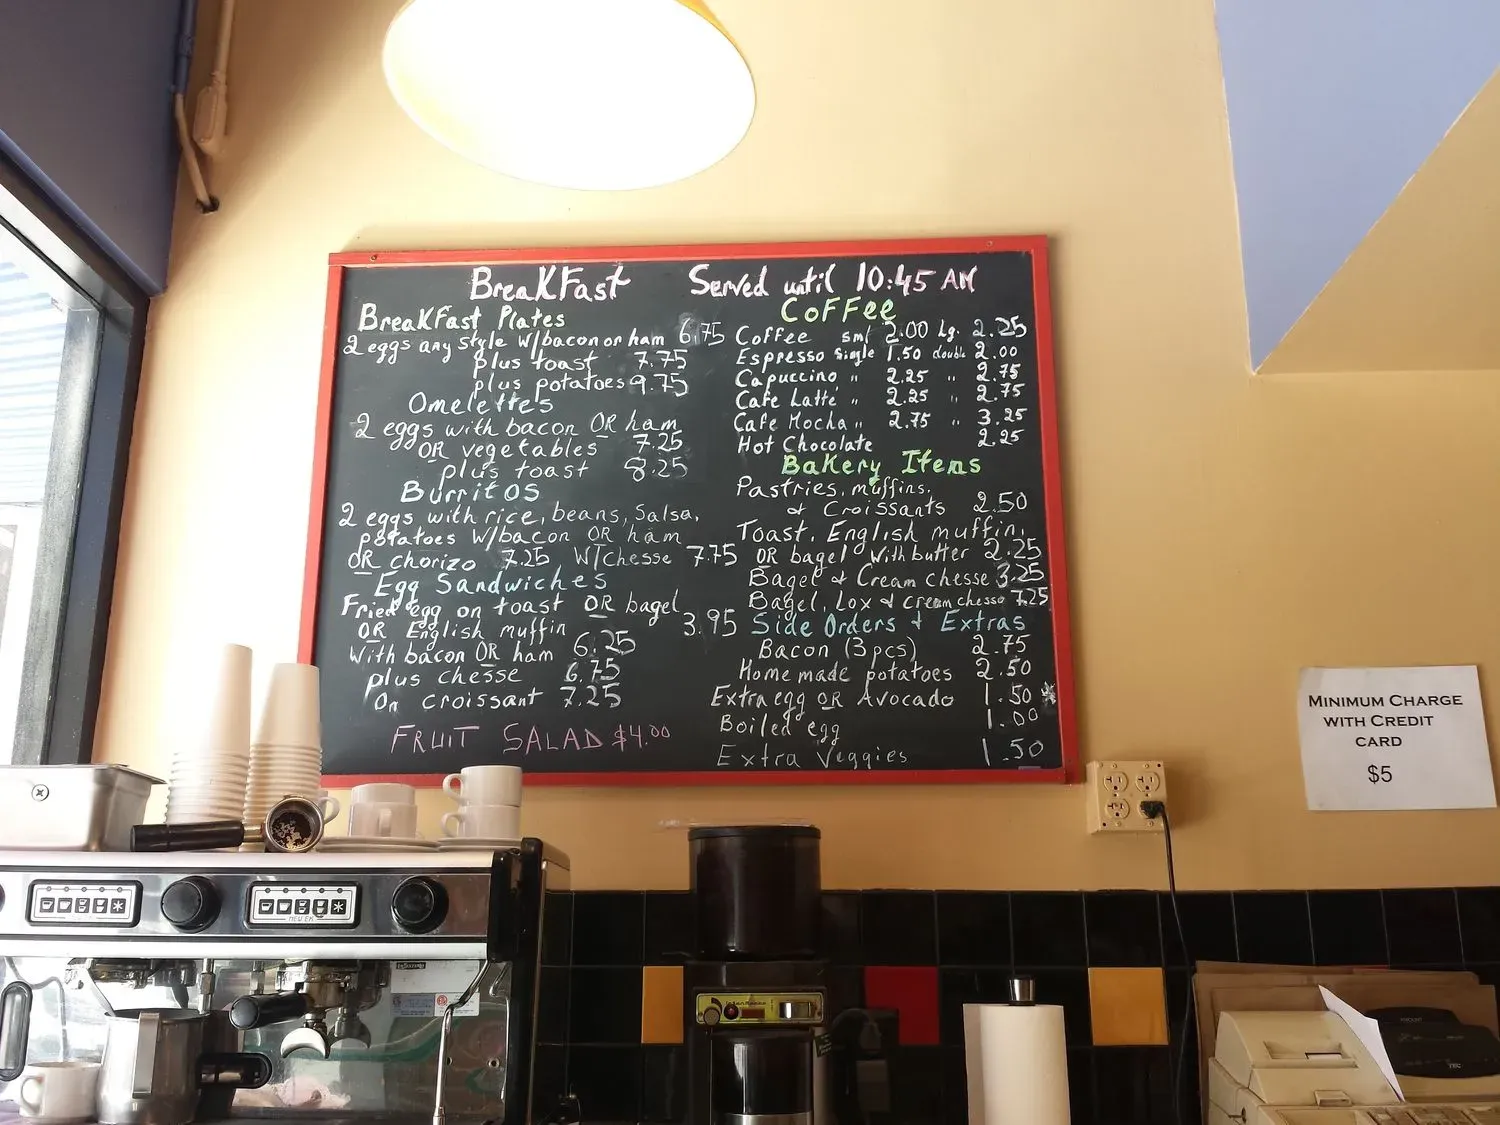 BreaKFast Served until 10:45 AM
BreaKFast Plates
2 eggs any style w/bacon or ham 6.75
plus toast 7.75
plus potatoes 9.75
Omelettes
2 eggs with bacon OR ham
OR vegetables 7.25
plus toast 8.25
Burritos
2 eggs with rice, beans, Salsa,
potatoes w/bacon OR ham
OR chorizo 7.25 W/chesse 7.75
Egg Sandwiches
Fried egg on toast OR bagel
OR English muffin 3.95
With bacon OR ham 6.25
plus chesse 6.75
On croissant 7.25
FRUIT SALAD $4.00
CoFFee
Coffee sml 2.00 Lg. 2.25
Espresso Single 1.50 double 2.00
Capuccino " 2.25 " 2.75
Cafe Latte " 2.25 " 2.75
Cafe Mocha " 2.75 " 3.25
Hot Chocolate 2.25
Bakery Items
Pastries, muffins,
& Croissants 2.50
Toast, English muffin,
OR bagel with butter 2.25
Bagel & Cream chesse 3.25
Bagel, Lox & cream chesse 7.25
Side Orders & Extras
Bacon (3pcs) 2.75
Home made potatoes 2.50
Extra egg OR Avocado 1.50 *
Boiled egg 1.00
Extra Veggies 1.50
MINIMUM CHARGE
WITH CREDIT
CARD
$5
NEW EK
TEC